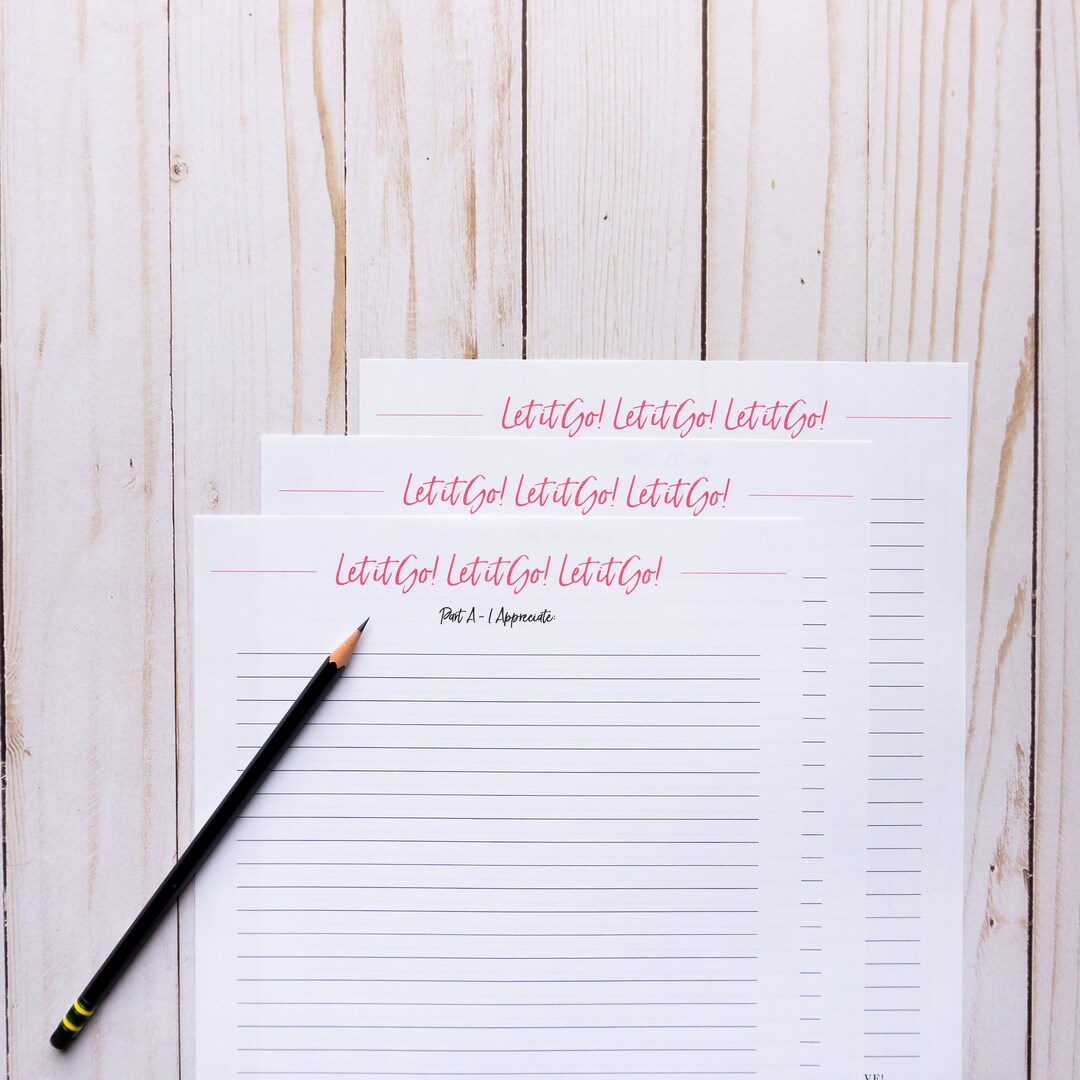 Let it Go! Let it Go! Let it Go!
Let it Go! Let it Go! Let it Go!
Let it Go! Let it Go! Let it Go!
Part A - I Appreciate: